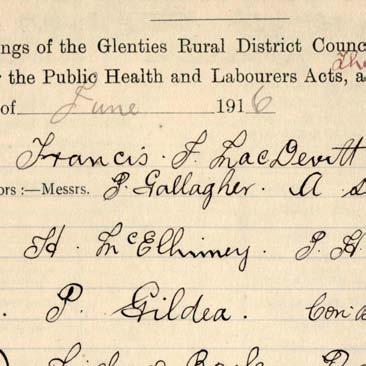 ngs of the Glenties Rural District Counc
r the Public Health and Labourers Acts, a
of June 1916
Francis. F. MacDevitt
ors :—Messrs. P. Gallagher. A
H. McElhinney. P. H
P. Gildea.
Boyle